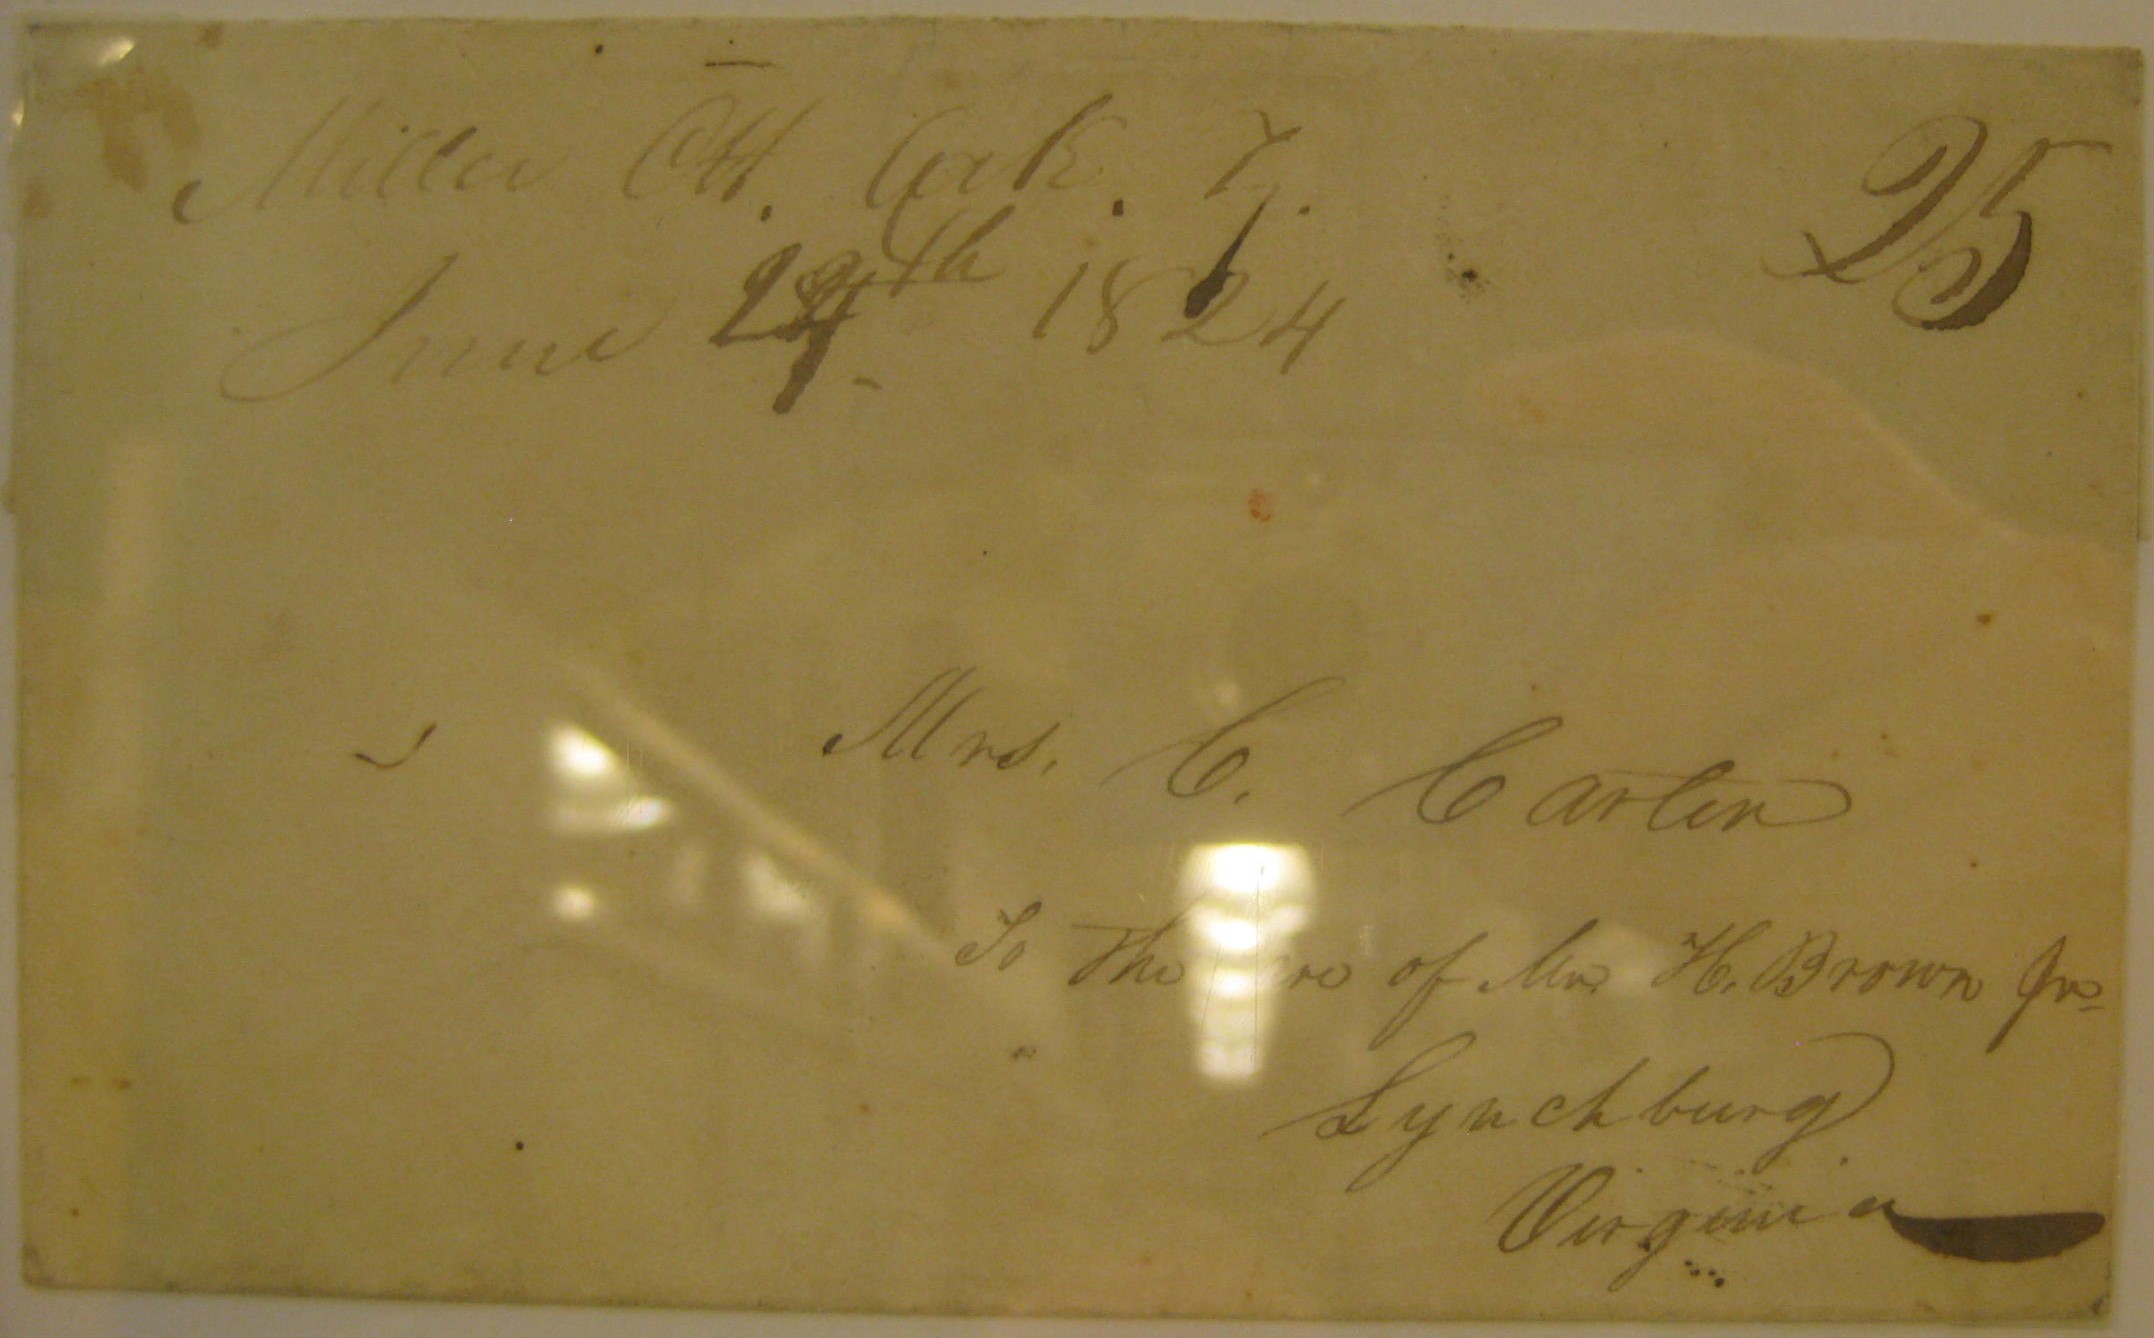 Miller CH. Ark. Ty. 25
June 29th 1824
Mrs. C. Carter
To the care of Mr. H. Brown Jr
Lynchburg
Virginia